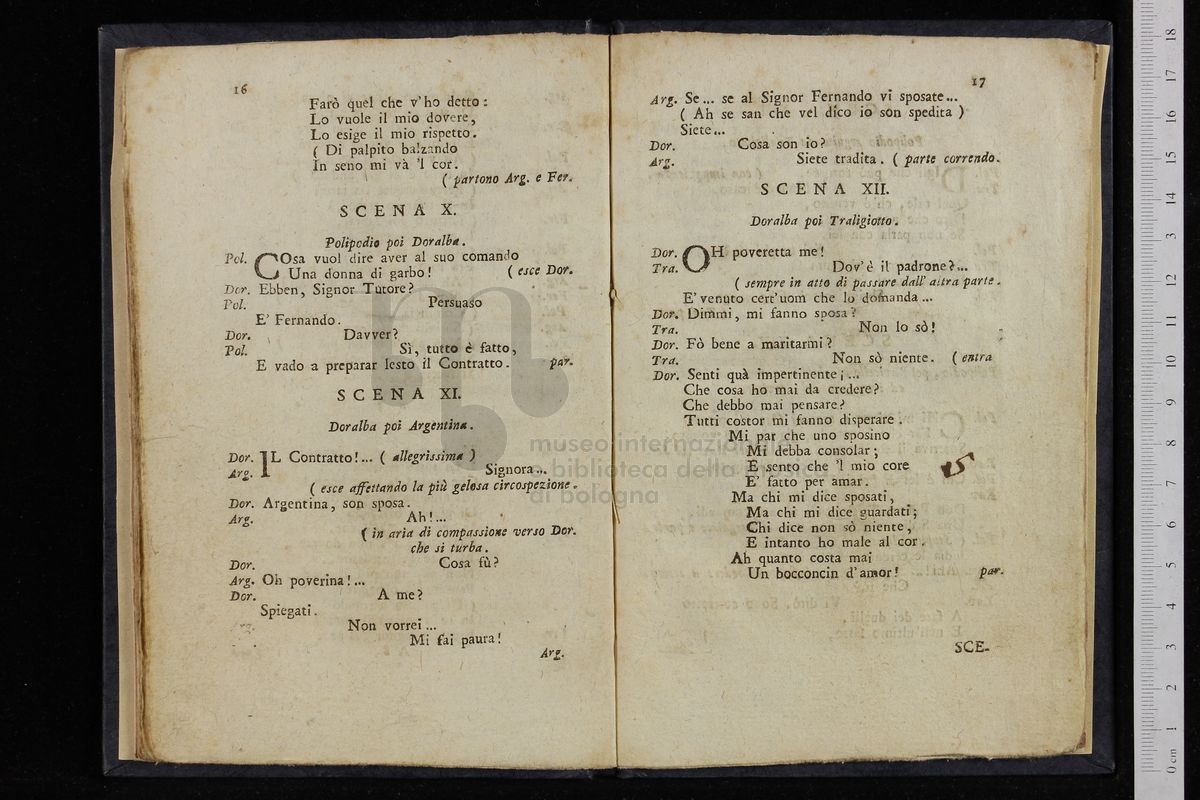 16
Farò quel che v'ho detto:
Lo vuole il mio dovere,
Lo esige il mio rispetto.
( Di palpito balzando
In seno mi và 'l cor.
( partono Arg. e Fer.
SCENA X.
Polipodio poi Doralba.
Pol. COsa vuol dire aver al suo comando
Una donna di garbo! ( esce Dor.
Dor. Ebben, Signor Tutore?
Pol. Persuaso
E' Fernando.
Dor. Davver?
Pol. Sì, tutto è fatto,
E vado a preparar lesto il Contratto. par.
SCENA XI.
Doralba poi Argentina.
Dor. IL Contratto!... ( allegrissima )
Arg. Signora...
( esce affettando la più gelosa circospezione.
Dor. Argentina, son sposa.
Arg. Ah!...
( in aria di compassione verso Dor.
che si turba.
Dor. Cosa fù?
Arg. Oh poverina!...
Dor. A me?
Spiegati.
Arg. Non vorrei...
Mi fai paura!
Arg.
17
Arg. Se... se al Signor Fernando vi sposate...
( Ah se san che vel dico io son spedita )
Siete...
Dor. Cosa son io?
Arg. Siete tradita. ( parte correndo.
SCENA XII.
Doralba poi Traligiotto.
Dor. OH poveretta me!
Tra. Dov'è il padrone?...
( sempre in atto di passare dall' altra parte.
E' venuto cert'uom che lo domanda...
Dor. Dimmi, mi fanno sposa?
Tra. Non lo sò!
Dor. Fò bene a maritarmi?
Tra. Non sò niente. ( entra
Dor. Senti quà impertinente;...
Che cosa ho mai da credere?
Che debbo mai pensare?
Tutti costor mi fanno disperare.
Mi par che uno sposino
Mi debba consolar;
E sento che 'l mio core
E' fatto per amar.
Ma chi mi dice sposati,
Ma chi mi dice guardati;
Chi dice non sò niente,
E intanto ho male al cor.
Ah quanto costa mai
Un bocconcin d'amor! par.
SCE-
museo internazionale
biblioteca della musica
di bologna
0 cm 1 2 3 4 5 6 7 8 9 10 11 12 13 14 15 16 17 18